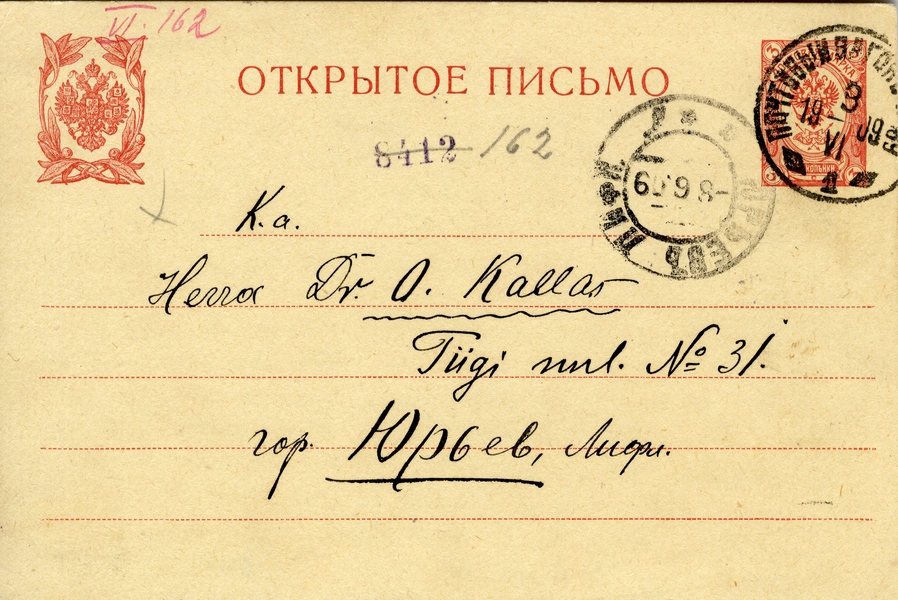 VI. 162
ОТКРЫТОЕ ПИСЬМО
8412 162
ПОЧТОВЫЙ ВАГОНЪ
19 3 VI 09
ЮРЬЕВЪ ЛИФЛ
-8 6.09
K. a.
Herra Dr. O. Kallas
Tiigi uul. № 31.
гор. Юрьев, Лифл.